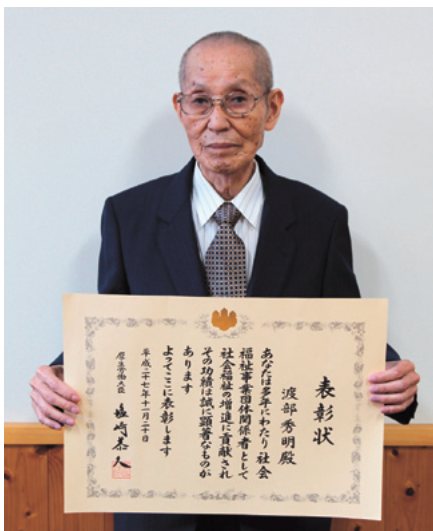 表彰状
渡部秀明殿
あなたは多年にわたり社会
福祉事業団体関係者として
社会福祉の増進に貢献され
その功績は誠に顕著なものが
あります
よってここに表彰します
平成二十七年十一月二十日
厚生労働大臣 塩崎恭久